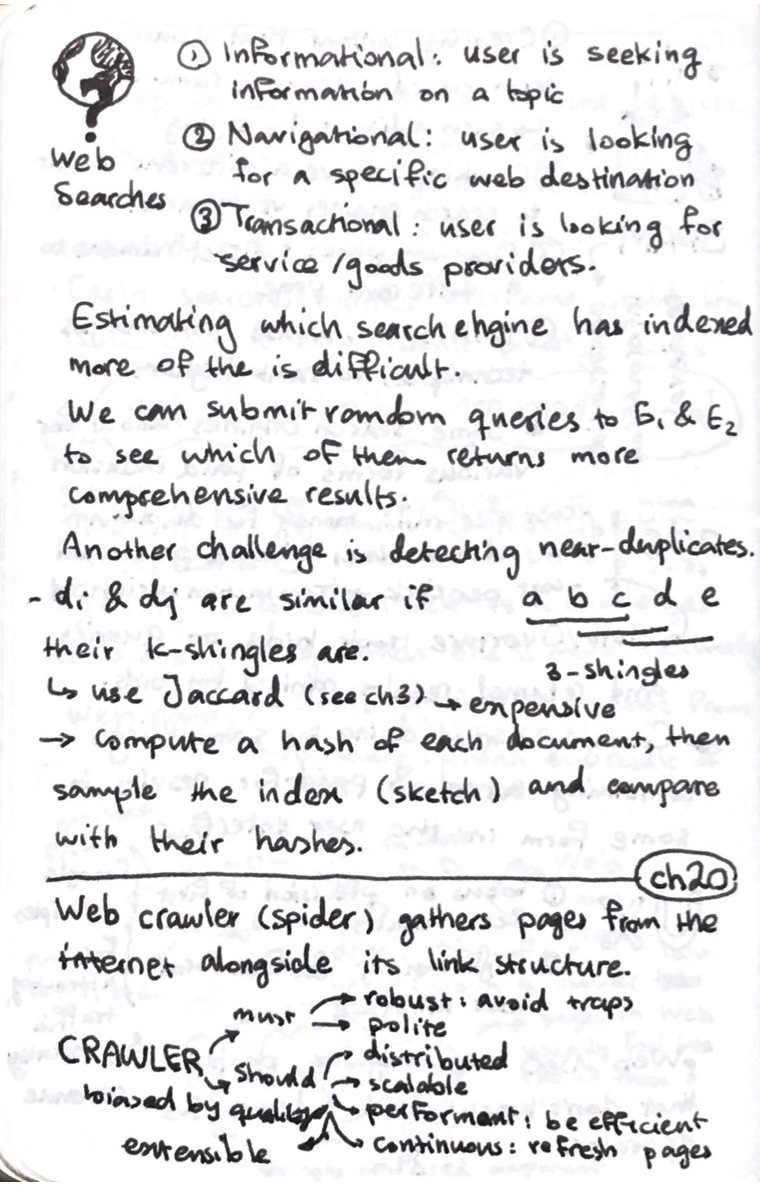 Web
Searches
① Informational: user is seeking
information on a topic
② Navigational: user is looking
for a specific web destination
③ Transactional: user is looking for
service/goods providers.
Estimating which search engine has indexed
more of the is difficult.
We can submit random queries to E₁ & E₂
to see which of them returns more
comprehensive results.
Another challenge is detecting near-duplicates.
- di & dj are similar if
their k-shingles are.
a b c d e
3-shingles
↳ use Jaccard (see ch3) → expensive
→ compute a hash of each document, then
sample the index (sketch) and compare
with their hashes.
ch20
Web crawler (spider) gathers pages from the
internet alongside its link structure.
CRAWLER
must
→ robust: avoid traps
→ polite
should
→ distributed
→ scalable
→ performant: be efficient
→ continuous: refresh pages
biased by quality
extensible